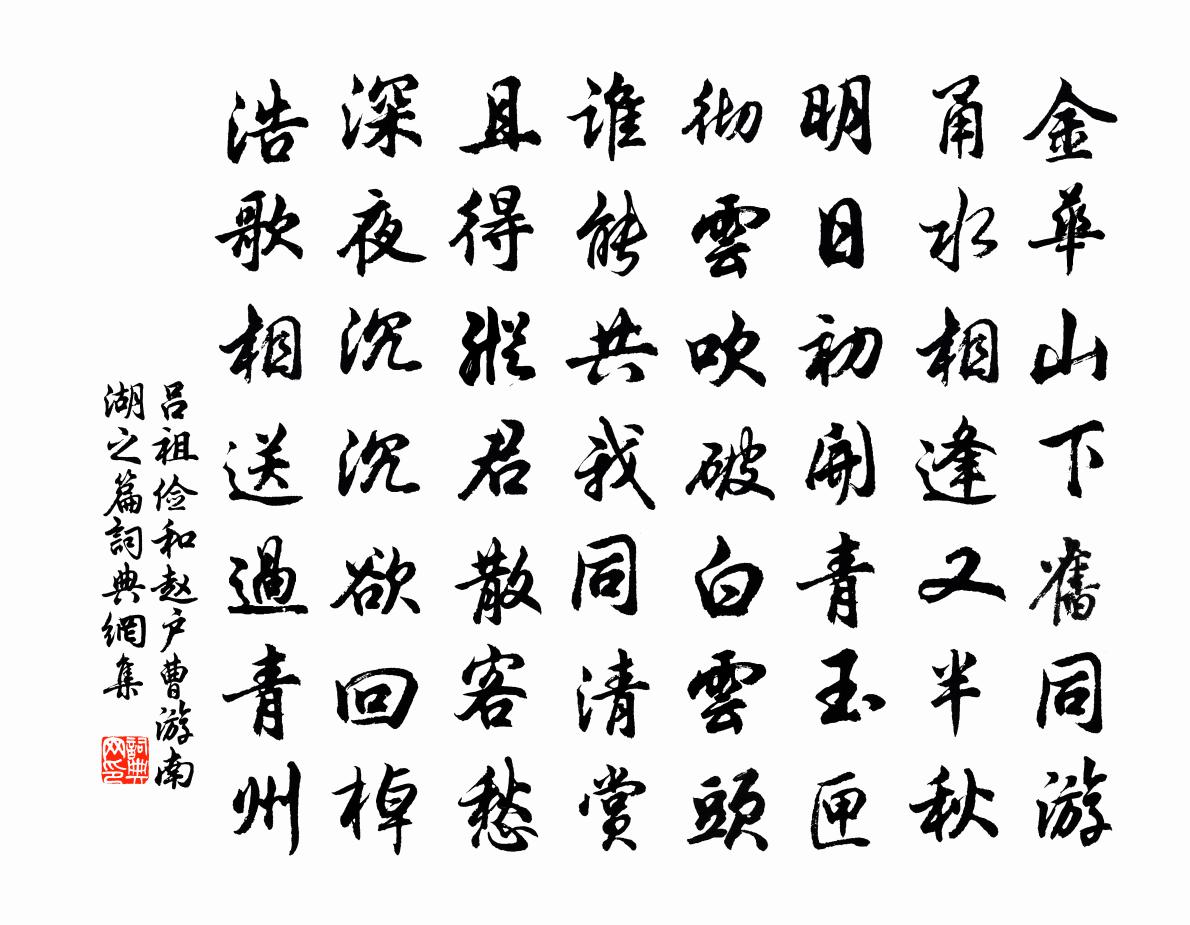 金華山下舊同游
甬水相逢又半秋
明日初開青玉匣
彻雲吹破白雲頭
谁能共我同清赏
且得縱君散客愁
深夜沉沉欲回棹
浩歌相送過青州
吕祖俭和赵户曹游南
湖之篇詞典網集
詞典網印